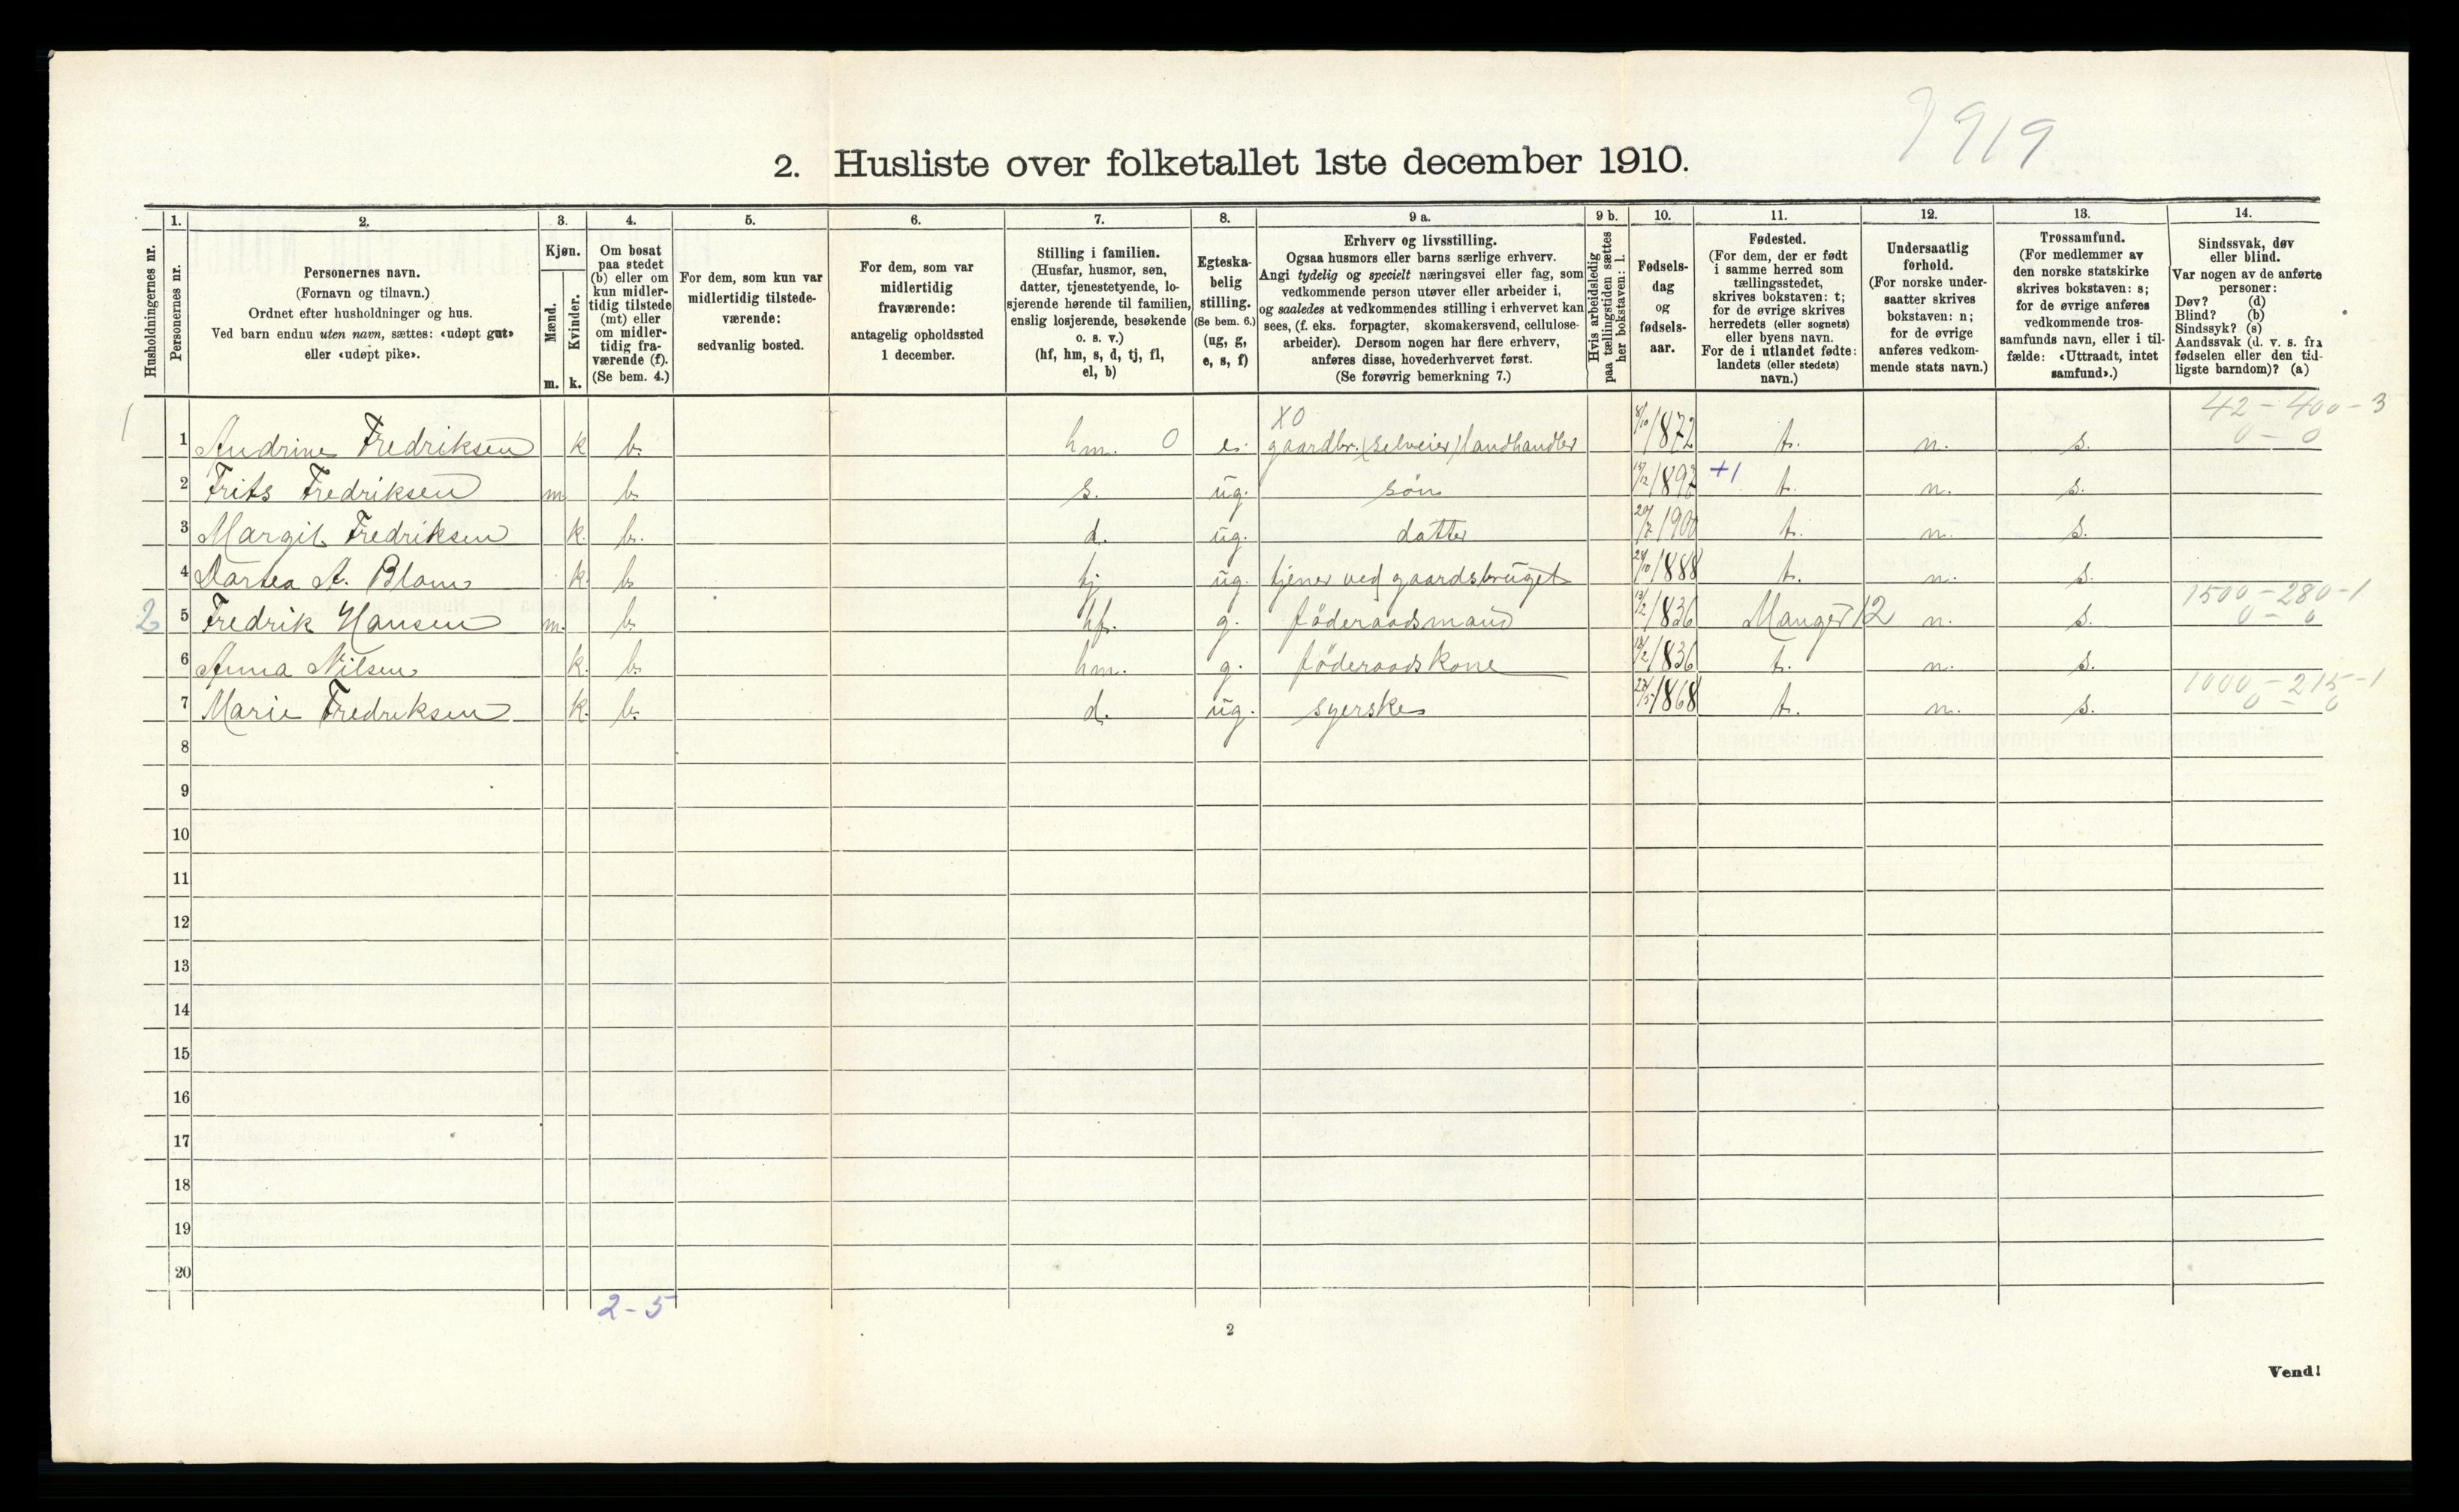 3919
2. Husliste over folketallet 1ste december 1910.
Husholdningernes nr.
1. Personernes nr.
2. Personernes navn.
(Fornavn og tilnavn.)
Ordnet efter husholdninger og hus.
Ved barn endnu uten navn, sættes: «udøpt gut»
eller «udøpt pike».
3. Kjøn.
Mænd. m.
Kvinder. k.
4. Om bosat
paa stedet
(b) eller om
kun midler-
tidig tilstede
(mt) eller
om midler-
tidig fra-
værende (f).
(Se bem. 4.)
5. For dem, som kun var
midlertidig tilstede-
værende:
sedvanlig bosted.
6. For dem, som var
midlertidig
fraværende:
antagelig opholdssted
1 december.
7. Stilling i familien.
(Husfar, husmor, søn,
datter, tjenestetyende, lo-
sjerende hørende til familien,
enslig losjerende, besøkende
o. s. v.)
(hf, hm, s, d, tj, fl,
el, b)
8. Egteska-
belig
stilling.
(Se bem. 6.)
(ug, g,
e, s, f)
9 a. Erhverv og livsstilling.
Ogsaa husmors eller barns særlige erhverv.
Angi tydelig og specielt næringsvei eller fag, som
vedkommende person utøver eller arbeider i,
og saaledes at vedkommendes stilling i erhvervet kan
sees, (f. eks. forpagter, skomakersvend, cellulose-
arbeider). Dersom nogen har flere erhverv,
anføres disse, hovederhvervet først.
(Se forøvrig bemerkning 7.)
9 b. Hvis arbeidsledig
paa tællingstiden sættes
her bokstaven: l.
10. Fødsels-
dag
og
fødsels-
aar.
11. Fødested.
(For dem, der er født
i samme herred som
tællingsstedet,
skrives bokstaven: t;
for de øvrige skrives
herredets (eller sognets)
eller byens navn.
For de i utlandet fødte:
landets (eller stedets)
navn.)
12. Undersaatlig
forhold.
(For norske under-
saatter skrives
bokstaven: n;
for de øvrige
anføres vedkom-
mende stats navn.)
13. Trossamfund.
(For medlemmer av
den norske statskirke
skrives bokstaven: s;
for de øvrige anføres
vedkommende tros-
samfunds navn, eller i til-
fælde: «Uttraadt, intet
samfund».)
14. Sindssvak, døv
eller blind.
Var nogen av de anførte
personer:
Døv? (d)
Blind? (b)
Sindssyk? (s)
Aandssvak (d. v. s. fra
fødselen eller den tid-
ligste barndom)? (a)
XO 42 - 400 - 3
1 1 Andrine Fredriksen k b. hm. 0 e. gaardbr. (selveier) landhandler 8/10 1872 t. n. s. 0 - 0
2 Frits Fredriksen m b. s. ug. søn 1892 +1 t. n. s.
3 Margit Fredriksen k. b. d. ug. datter 1900 t. n. s.
4 Dortea A. Blom k. b. tj ug. tjener ved gaardsbruget 1888 t. n. s.
1500 - 280 - 1
2 5 Fredrik Hansen m. b. hf. g. föderaadsmand 1836 Manger 12 n. s. 0 - 0
6 Anna Nilsen k. b. hm. g. föderaadskone 1836 t. n. s.
1000 - 215 - 1
7 Marie Fredriksen k. b. d. ug. syerske 1868 t. n. s. 0 - 0
8
9
10
11
12
13
14
15
16
17
18
19
20
2-5
2
Vend!